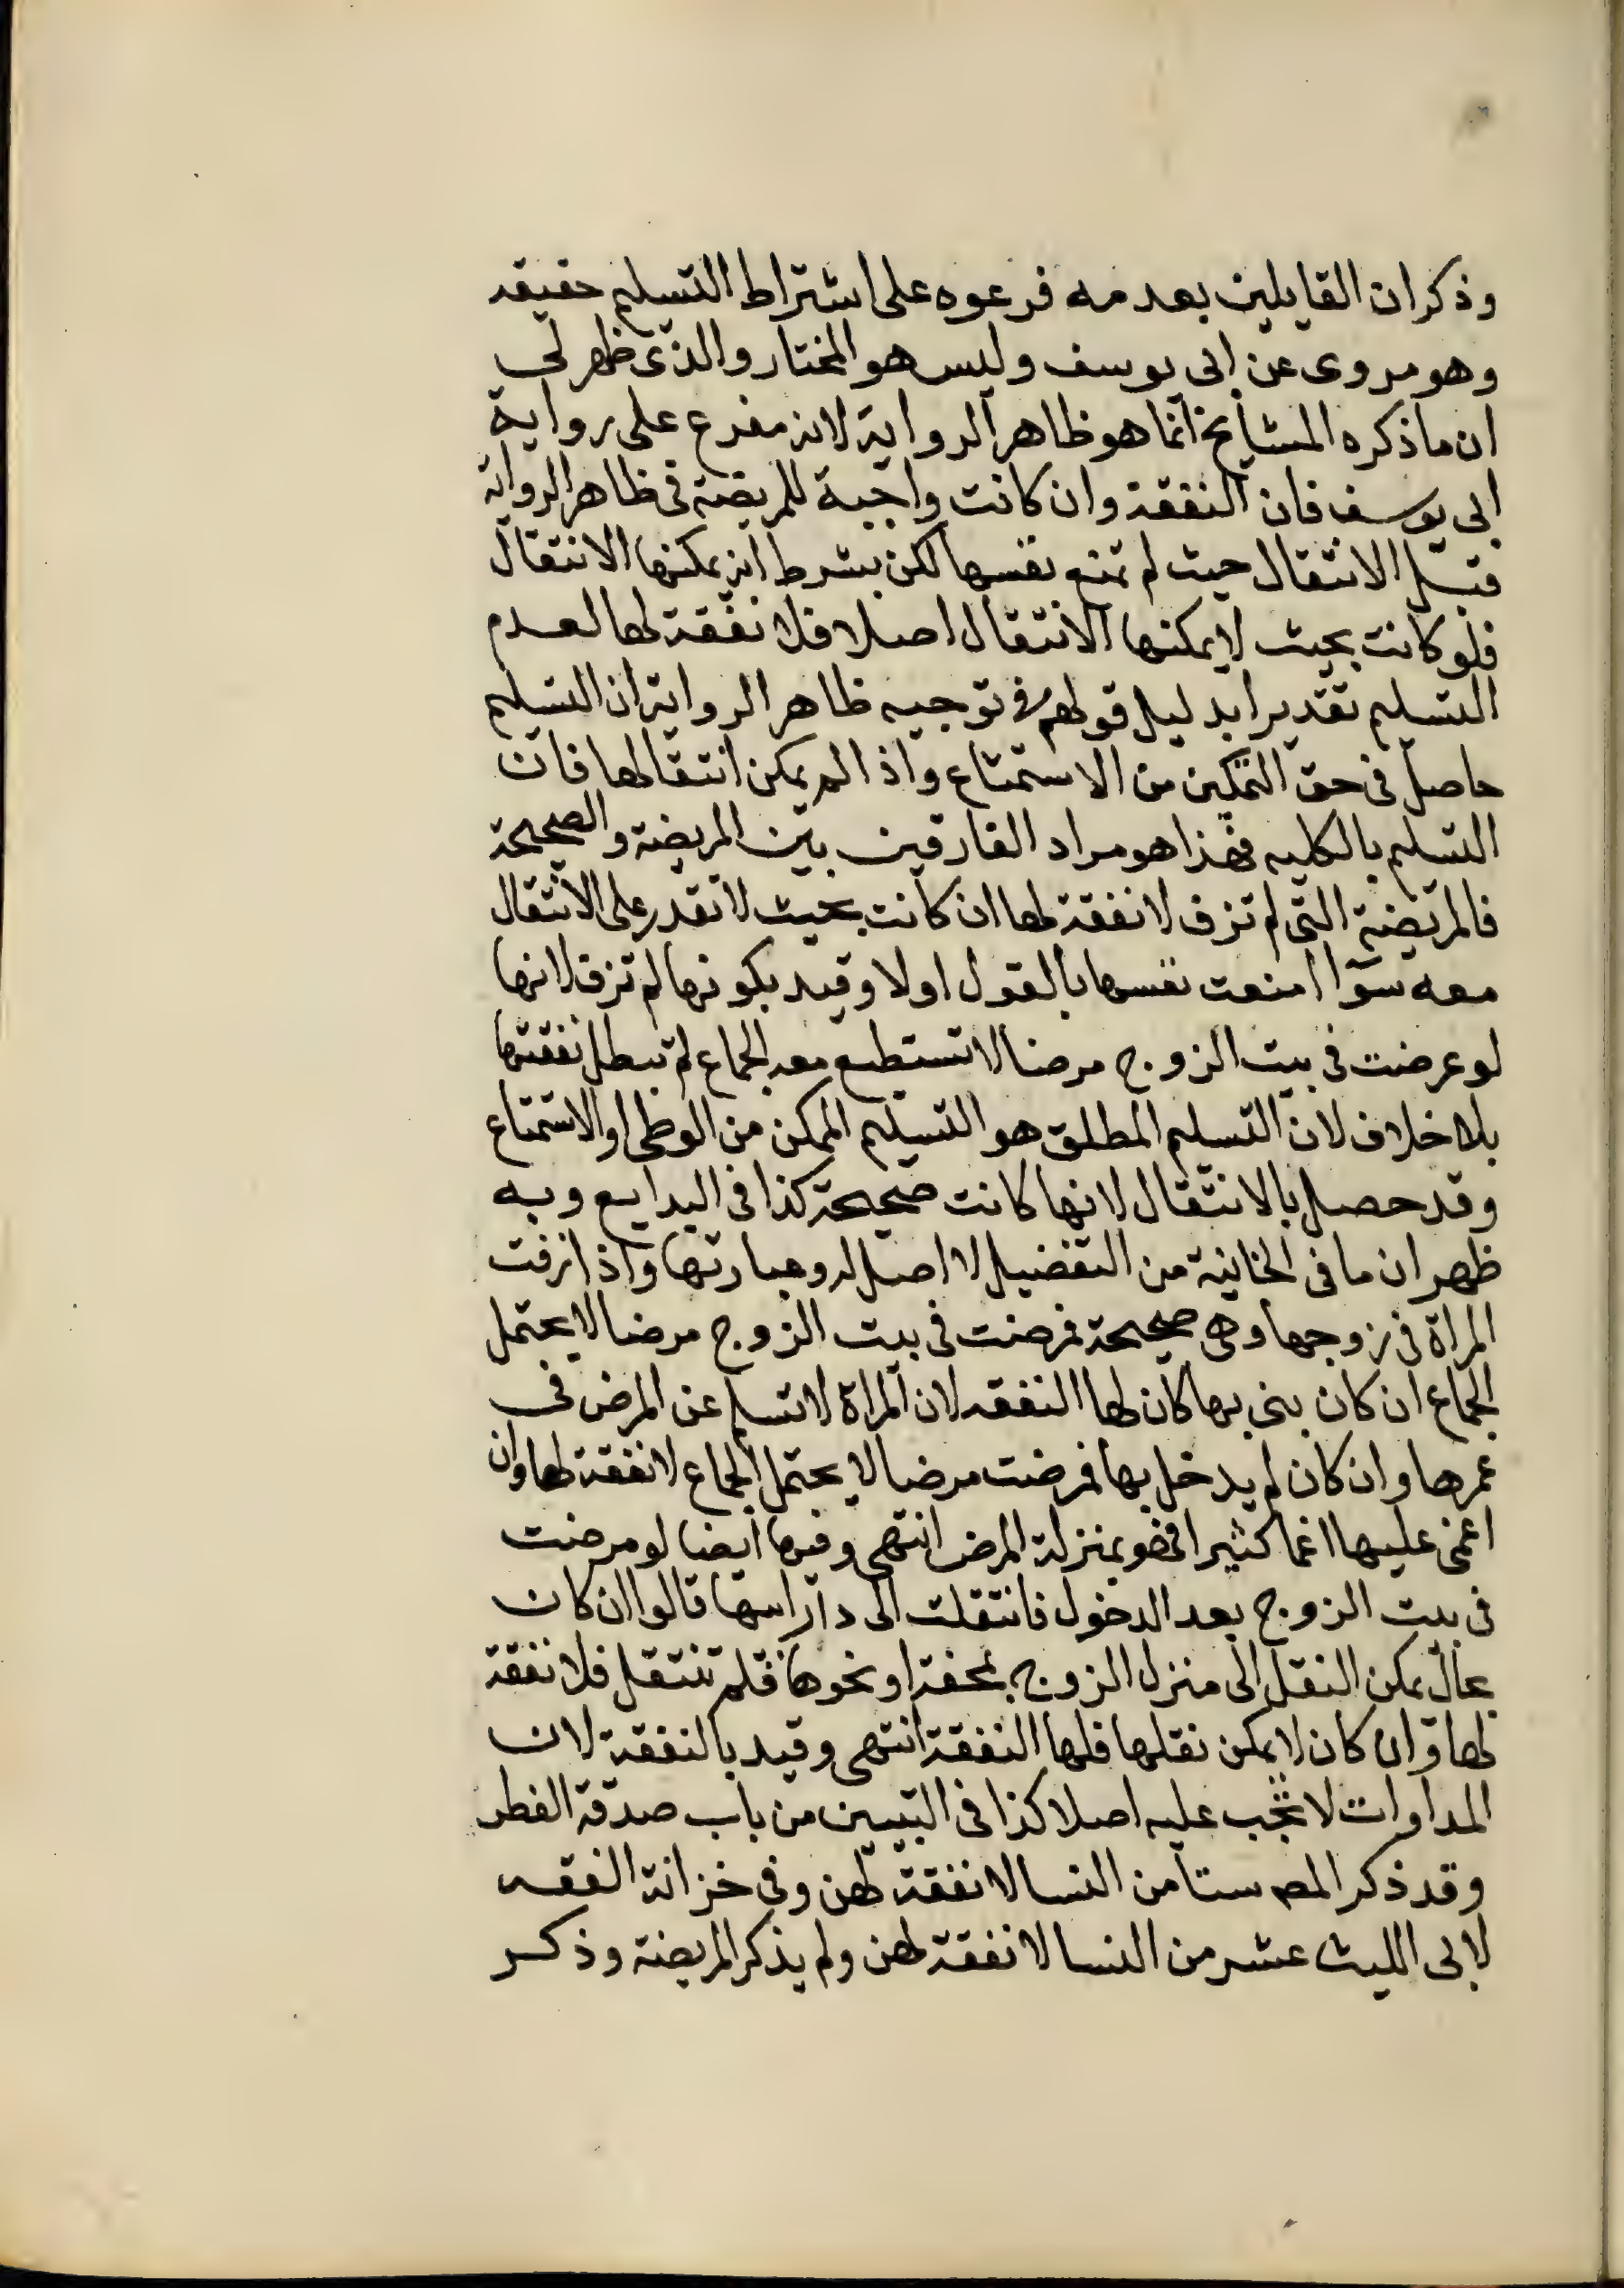 وذكر ان القايلين بعدمه فرعوه على اشتراط التسليم حقيقه
وهو مروى عن ابى يوسف وليس هو المختار والذى ظهر لى
ان ما ذكره المشايخ انما هو ظاهر الرواية لانه مفرع على رواية
ابى يوسف فان النفقة وان كانت واجبة للمريضة فى ظاهر الرواية
قبل الانتقال حيث لم تمنع نفسها لكن بشرط انه يمكنها الانتقال
فلو كانت بحيث لا يمكنها الانتقال اصلا فلا نفقة لها لعدم
التسليم تقديرا بدليل قولهم فى توجيه ظاهر الرواية ان التسليم
حاصل فى حق التمكين من الاستمتاع واذا لم يمكن انتقالها فات
التسليم بالكليه فهذا هو مراد الفارقين بين المريضة والصحيحة
فالمريضة التى لم تزف لا نفقة لها ان كانت بحيث لا تقدر على الانتقال
معه سوا منعت نفسها بالقول اولا وقيد بكونها لم تزف لانها
لو عرضت فى بيت الزوج مرضا لا تستطيع معه الجماع لم تبطل نفقتها
بلا خلاف لان التسليم المطلق هو التسليم الممكن من الوطى او الاستمتاع
وقد حصل بالانتقال لانها كانت صحيحة كذا فى البدايع وبه
ظهر ان ما فى الخانية من التفصيل لا اصل له وعبارتها واذا زفت
المراة فى زوجها وهى صحيحة فمرضت فى بيت الزوج مرضا لا يحتمل
الجماع ان كان بنى بها كان لها النفقه لان المراة لا تسلم عن المرض فى
عمرها وان كان لم يدخل بها فمرضت مرضا لا يحتمل الجماع لا نفقة لها وان
اغمى عليها اغما كثيرا فهو بمنزلة المرض انتهى وفيها ايضا لو مرضت
فى بيت الزوج بعد الدخول فانتقلت الى دار ابيها قالوا ان كان
بحال يمكن النقل الى منزل الزوج بمحفة او نحوها فلم تنتقل فلا نفقة
لها وان كان لا يمكن نقلها فلها النفقة انتهى وقيد بالنفقة لان
المداوات لا تجب عليه اصلا كذا فى التبيين من باب صدقة الفطر
وقد ذكر المص ستا من النسا لا نفقة لهن وفى خزانة الفقه
لابى الليث عشر من النسا لا نفقة لهن ولم يذكر المريضة وذكر